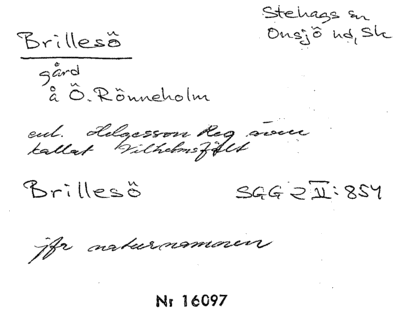 Stehags sn
Onsjö hd, Sk
Brillesö
gård
å Ö. Rönneholm
enl. Helgesson Reg även
kallat Vilhelmsfält
Brillesö SGG 2 II: 854
jfr naturnamnen
Nr 16097